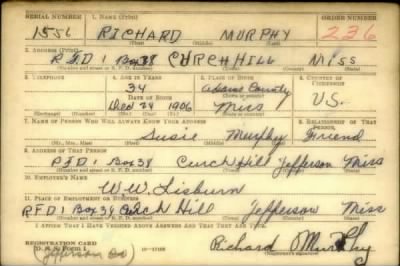 SERIAL NUMBER 1. NAME (Print) ORDER NUMBER
1556 RICHARD MURPHY 236
(First) (Middle) (Last)
2. ADDRESS (Print)
R.F.D 1 Box 38 CHRCH HILL MISS
(Number and street or R. F. D. number) (Town) (County) (State)
3. TELEPHONE 4. AGE IN YEARS 5. PLACE OF BIRTH 6. COUNTRY OF CITIZENSHIP
34 Adams County
DATE OF BIRTH (Town or county)
Dec 24 1906 Miss U.S.
(Mo.) (Day) (Yr.) (State or country)
7. NAME OF PERSON WHO WILL ALWAYS KNOW YOUR ADDRESS 8. RELATIONSHIP OF THAT PERSON
Susie Murphy Friend
(Mr., Mrs., Miss) (First) (Middle) (Last)
9. ADDRESS OF THAT PERSON
R.F.D 1 Box 38 Curch Hill Jefferson Miss
(Number and street or R. F. D. number) (Town) (County) (State)
10. EMPLOYER'S NAME
W.W. Lisburn
11. PLACE OF EMPLOYMENT OR BUSINESS
R.F.D 1 Box 38 Curch Hill Jefferson Miss
(Number and street or R. F. D. number) (Town) (County) (State)
I AFFIRM THAT I HAVE VERIFIED ABOVE ANSWERS AND THAT THEY ARE TRUE.
REGISTRATION CARD
D. S. S. Form 1 Richard Murphy
(Jefferson Co) (Registrant's signature)